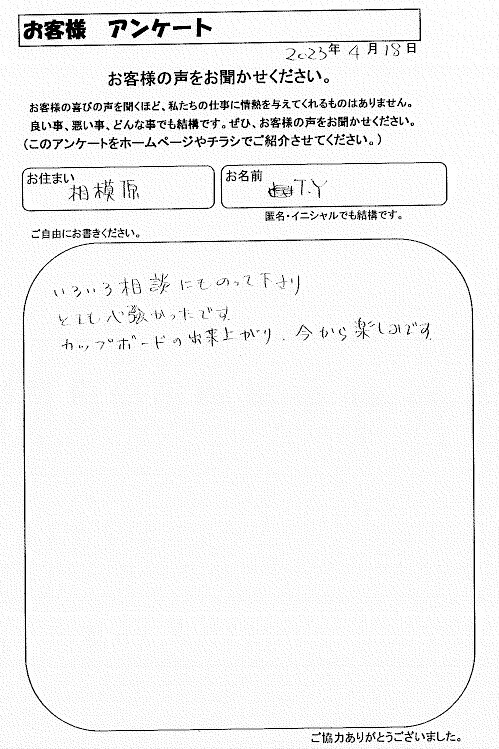 お客様 アンケート
2023年 4月18日
お客様の声をお聞かせください。
お客様の喜びの声を聞くほど、私たちの仕事に情熱を与えてくれるものはありません。
良い事、悪い事、どんな事でも結構です。ぜひ、お客様の声をお聞かせください。
(このアンケートをホームページやチラシでご紹介させてください。)
お住まい
相模原
お名前
T.Y
匿名・イニシャルでも結構です。
ご自由にお書きください。
いろいろ相談にものって下さり
とても心強かったです
カップボードの出来上がり、今から楽しみです
ご協力ありがとうございました。